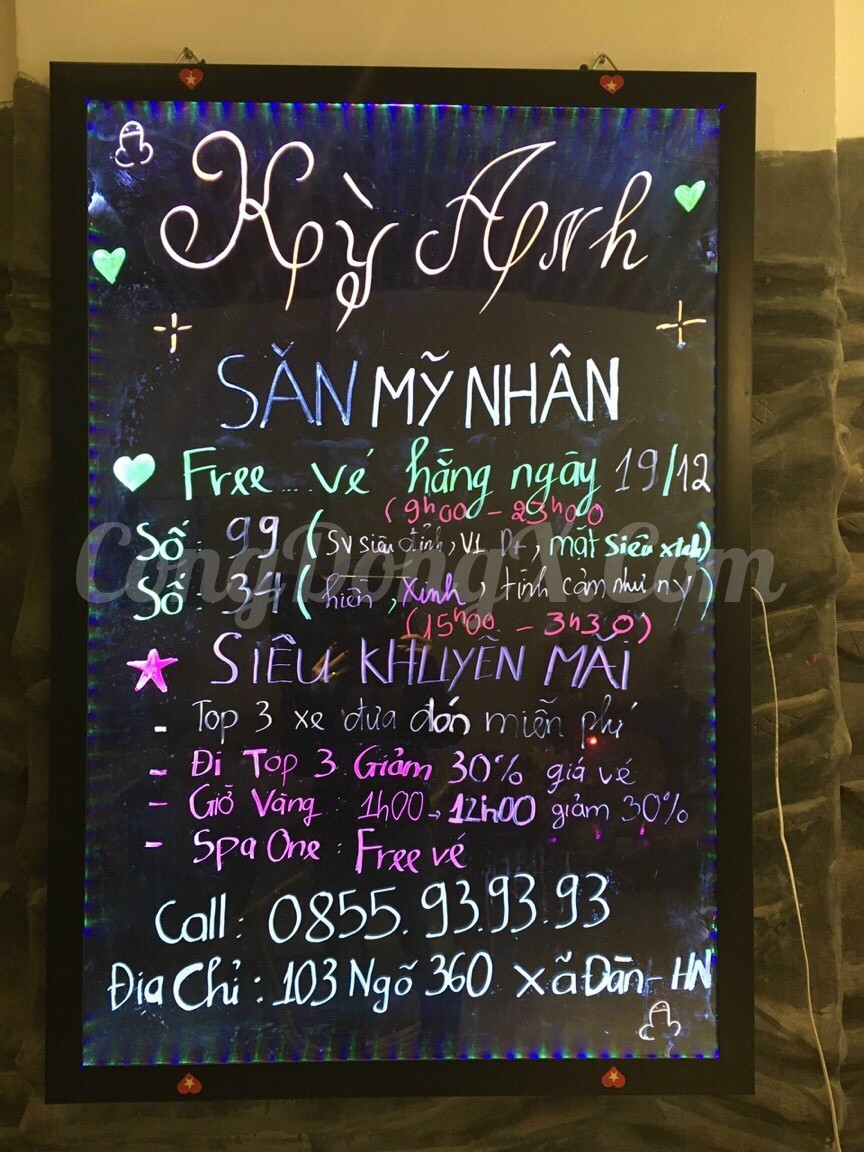 Kỳ Anh
SĂN MỸ NHÂN
Free....vé hằng ngày 19/12
(9h00 - 23h00
Số : 99 (SV siêu đỉnh, V1 Dt, mặt siêu xinh)
Số : 34 (hiền, Xinh, tình cảm như ny)
(15h00 - 3h30)
SIÊU KHUYẾN MÃI
- Top 3 xe đưa đón miễn phí
- Đi Top 3 Giảm 30% giá vé
- Giờ Vàng : 1h00 → 12h00 giảm 30%
- Spa One : Free vé
Call : 0855.93.93.93
Địa Chỉ : 103 Ngõ 360 xã Đàn - HN
CongDongX.Com